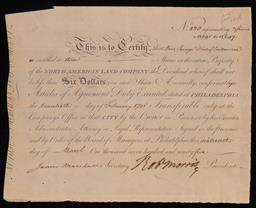 This is to Certify, that
is entitled to
Shares in the entire Property of
the NORTH AMERICAN LAND COMPANY, the Dividend whereof shall not
be less than Six Dollars on each Share Annually, conformably to
Articles of Agreement Duly Executed, dated at PHILADELPHIA
the twentieth day of February 1795, Transferable only at the
Company's Office in that CITY, by the Owner in Person or by his Executor
Administrator, Attorney or Legal Representative. Signed in the presence
and by Order of the Board of Managers, at PHILADELPHIA, the
day of March One thousand seven hundred and ninety five
James Marshall Secretary Rob Morris President